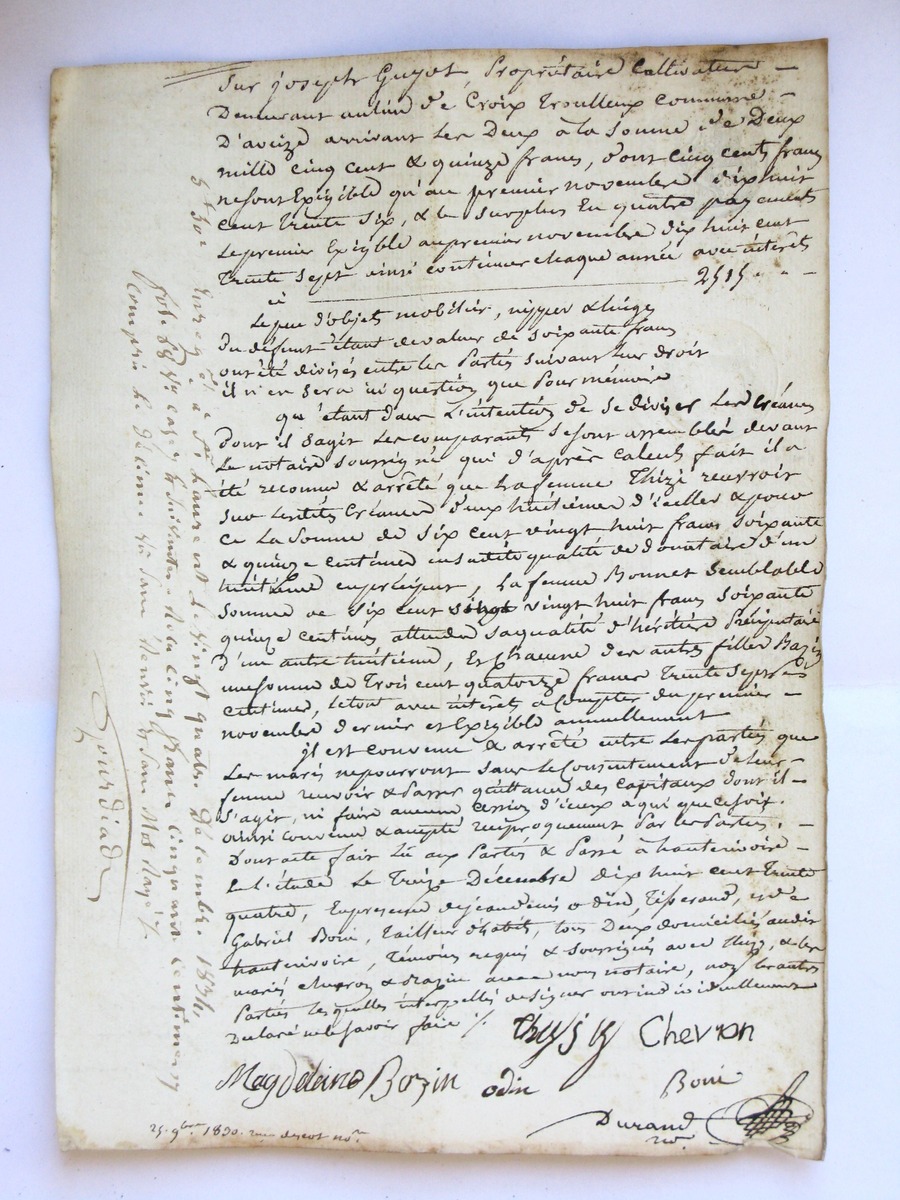 Sur joseph Guyot, Propriétaire Cultivateur
Demeurant au lieu de Croix Trouilleux commune
D'aveize arrivant les Deux à la Somme de Deux
mille cinq cent & quinze francs, dont cinq cents francs
ne sont Exigible qu'au premier novembre dixhuit
cent Trente Six, & le Surplus En quatre payements
Le premier Exigible au premier novembre dix huit cent
Trente Sept ainsi continuer chaque année avec intérêts
ci 2515
Le peu d'objets mobilier, nippes & linge
du défunt étant de valeur de soixante francs
ont été divisés entre les Partis suivant leur droit
il n'en sera ici question que Pour mémoire
qu'étant dans L'intention de se diviser Les Créances
Dont il s'agit Les comparants se sont assemblés devant
Le notaire soussigné qui d'après calcul fait il a
été reconnu & arrêté que la femme Thizy recevroit
sur lesdites Créances Deux huitièmes & pour
ce La Somme de Six cent vingt huit francs soixante
& quinze centimes en sadite qualité de donataire d'un
huitième en préciput, La femme Bonnet semblable
somme de six cent vingt huit francs soixante
quinze centimes attendu sa qualité d'héritière
D'un autre huitième, Et chacune des autres filles Bazin
une somme de Trois cent quatorze francs Trente Sept
centimes, Le tout avec intérêts à compter du premier
novembre dernier et Exigible annuellement
il est convenu & arrêté entre Les parties que
Les maris ne pourront sans Le Consentement de leur
femme recevoir & Passer quittance des capitaux dont il
S'agit, ni faire aucune cession d'iceux à qui que ce soit.
ainsi convenu & accepté réciproquement Par les Parties.
Dont acte fait Lû aux Partis & Passé à hauterivoire
En L'étude Le Treize Décembre dix huit cent Trente
quatre, En présence de jean denis odin, Tisserand, & de
Gabriel Boni, Tailleur d'habits, tous Deux domiciliés audit
hauterivoire, Témoins requis & soussignés avec Thizy, & les
mariés chevron & Bazin avec nous notaire, non les autres
Partis lesquelles interpellés de signer ont individuellement
Déclaré ne le savoir faire ./.
Thysjy Chevron
Magdeleine Bozin odin Boni
Durand
nre
25. 9bre 1830. not.re
Enreg.é à St Laurent le vingt quatre Décembre 1834.
cinq francs cinquante centimes
Compris le décime
Gourdiade